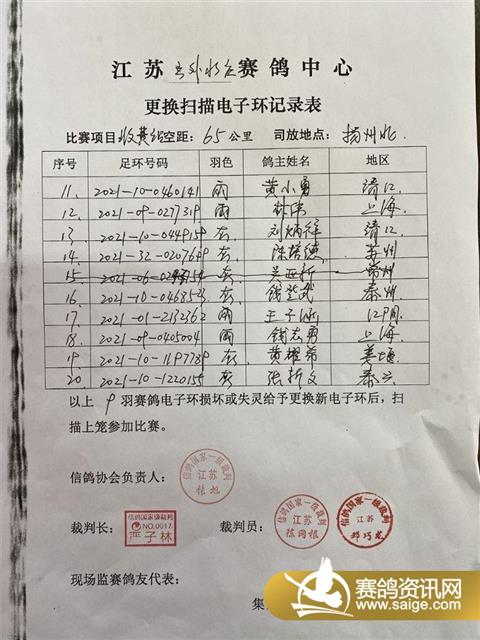 江苏 赛鸽中心
更换扫描电子环记录表
比赛项目 空距：65公里 司放地点：扬州北
序号 足环号码 羽色 鸽主姓名 地区
11. 2021-10-0460141 雨 黄小勇 靖江
12. 2021-09-0277319 雨 上海
13. 2021-10-0449159 灰 刘炳祥 靖江
14. 2021-32-0207699 灰 陈培德 苏州
15. 2021-06- 灰 吴亚新 常州
16. 2021-10-0468523 灰 泰州
17. 2021-01-2132362 雨
18. 2021-09-0405004 雨 钱志勇 上海
19. 2021-10-1197789 灰 黄耀希 姜堰
20. 2021-10-1220155 灰 张新文 泰兴
以上 9 羽赛鸽电子环损坏或失灵给予更换新电子环后，扫
描上笼参加比赛。
信鸽协会负责人：
信鸽国家一级裁判
江苏
裁判长：
信鸽国家级裁判
NO.0017
严子林
裁判员：
信鸽国家一级裁判
江苏
陈同根
信鸽国家一级裁判
江苏
郑巧龙
现场监赛鸽友代表：
集
赛鸽资讯网
www.saige.com